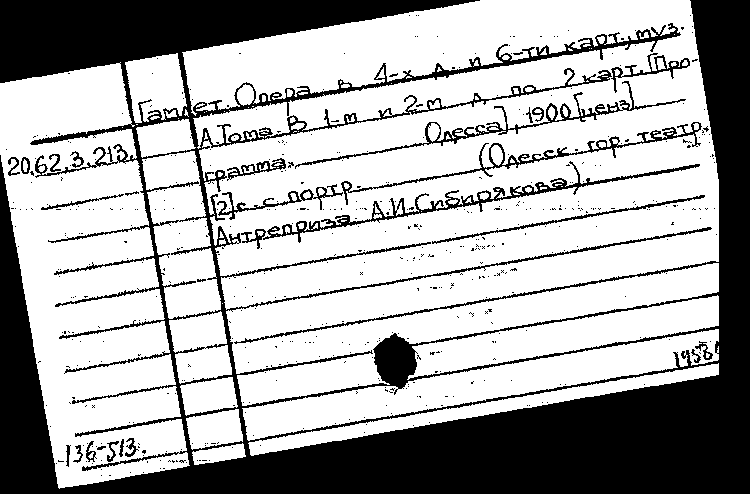 Гамлет. Опера в 4-х д. и 6-ти карт., муз.
А.Тома. В 1-м и 2-м д. по 2 карт. [Про-
20.62.3.213.
грамма. Одесса], 1900 [ценз]
[2] с. с портр. (Одесск. гор. театр.
Антреприза А.И.Сибирякова).
1958г
136-513.